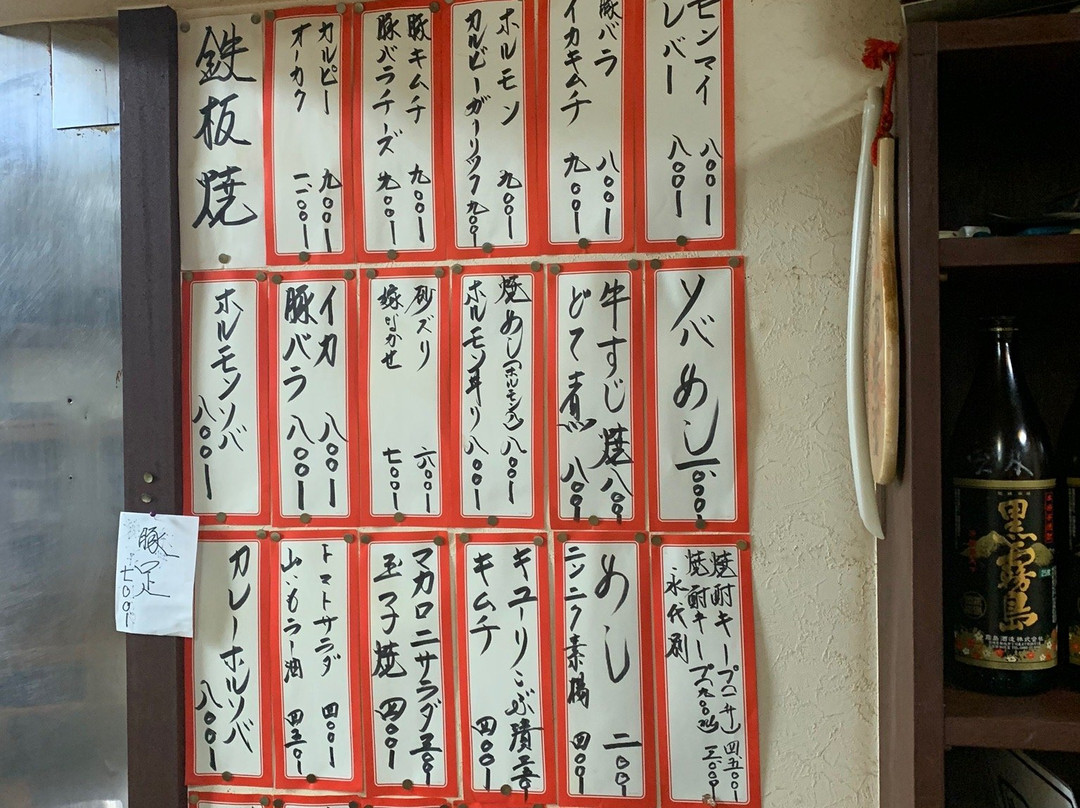 センマイ 八〇〇
レバー 八〇〇
豚バラ 八〇〇
イカキムチ 九〇〇
ホルモン 九〇〇
カルビーガーリック 九〇〇
豚キムチ 九〇〇
豚バラチーズ 九〇〇
カルピー 九〇〇
オーカク 一一〇〇
鉄板焼
ソバめし 一〇〇〇
牛すじ焼 八〇〇
どて煮 八〇〇
焼めし(ホルモン入) 八〇〇
ホルモン丼リ 八〇〇
砂ズリ 六〇〇
七〇〇
イカ 八〇〇
豚バラ 八〇〇
ホルモンソバ 八〇〇
豚足
七〇〇
焼酎キープ
焼酎キープ
氷代別
めし 二〇〇
ニンニク素揚 四〇〇
キューリこぶ漬
キムチ 四〇〇
マカロニサラダ
玉子焼 四〇〇
トマトサラダ 四〇〇
山いもラー油
カレーホルソバ 八〇〇
黒霧島